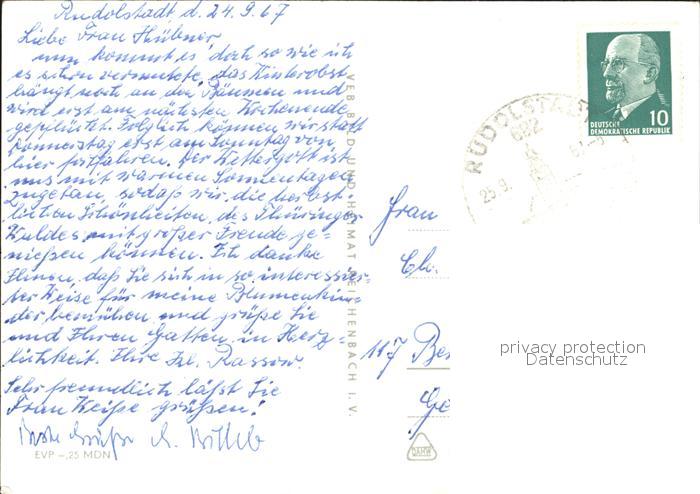 Rudolstadt d. 24.9.67
Liebe Frau Hübner
nun kommt es doch so wie ich
es schon vermutete, das Winterobst
hängt noch an den Bäumen und
wird erst am nächsten Wochenende
gepflückt. Folglich können wir statt
Donnerstag erst am Sonntag von
hier fortfahren. Der Wettergott ist
uns mit warmen Sonnentagen
zugetan, sodaß wir die herbst-
lichen Schönheiten des Thüringer
Waldes mit großer Freude ge-
nießen können. Ich danke
Ihnen, daß Sie sich in so interessier-
ter Weise für meine Blumenkin-
der bemühen und grüße Sie
und Ihren Gatten in Herz-
lichkeit. Ihre Frl. Rassow.
Sehr freundlich läßt Sie
Frau Weiße grüßen!
EVP –,25 MDN
VEB BILD UND HEIMAT REICHENBACH I. V.
RUDOLSTADT
682
25.9.
DEUTSCHE
DEMOKRATISCHE REPUBLIK
10
Frau
Ch.
117 Be
privacy protection
Datenschutz